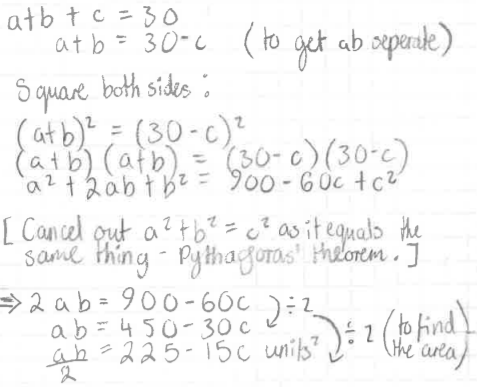 a+b + c = 30
a+b = 30-c (to get ab seperate)
Square both sides:
(a+b)² = (30-c)²
(a+b)(a+b) = (30-c)(30-c)
a² + 2ab + b² = 900 - 60c + c²
[Cancel out a² + b² = c² as it equals the
same thing - Pythagoras' theorem.]
⇒ 2ab = 900-60c ÷2
ab = 450-30c
ab/2 = 225-15c units² ÷2 (to find
the area)